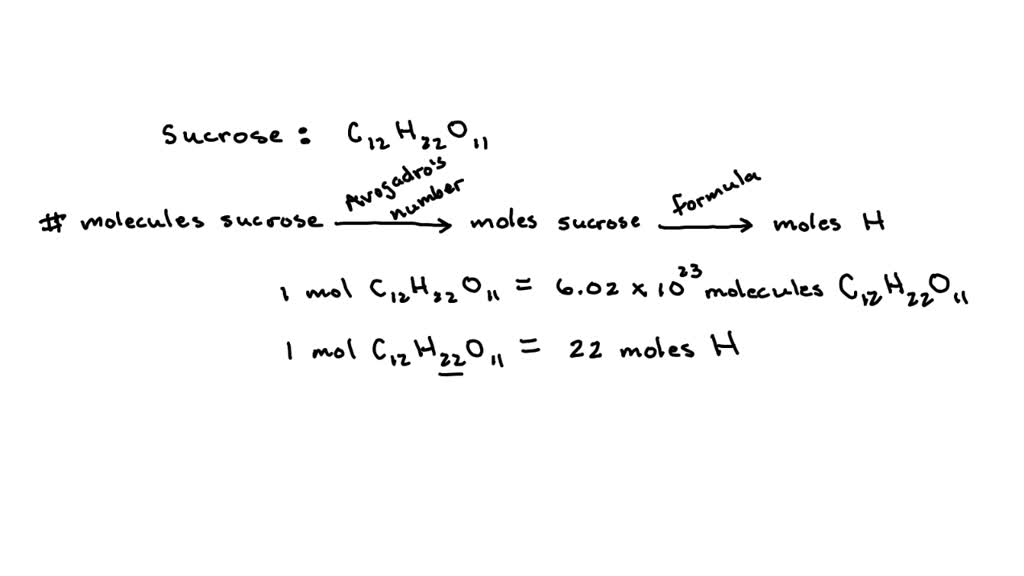 Sucrose: C₁₂H₂₂O₁₁
# molecules sucrose Avogadro's number → moles sucrose formula → moles H
1 mol C₁₂H₂₂O₁₁ = 6.02 × 10²³ molecules C₁₂H₂₂O₁₁
1 mol C₁₂H₂₂O₁₁ = 22 moles H